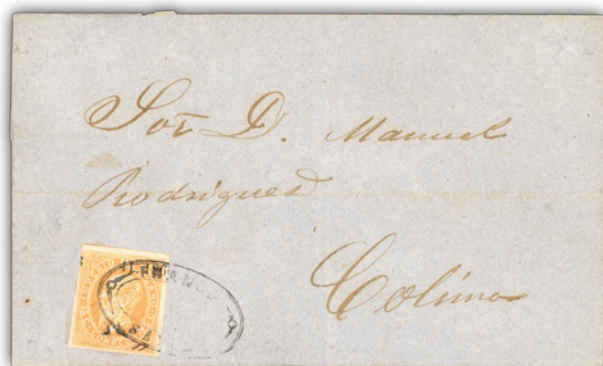 Sor D. Manuel
Rodrigues
Colima